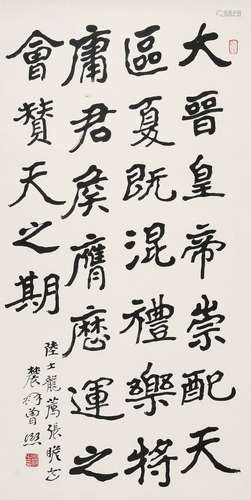 大晉皇帝崇配天
區夏既混禮樂將
庸君矦膺歷運之
會贊天之期
陸士龍薦張瞻書
農髯曾熙